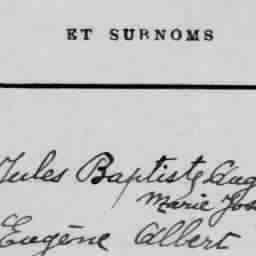 ET SURNOMS
Jules Baptiste Aug
Marie Jos
Eugène Albert